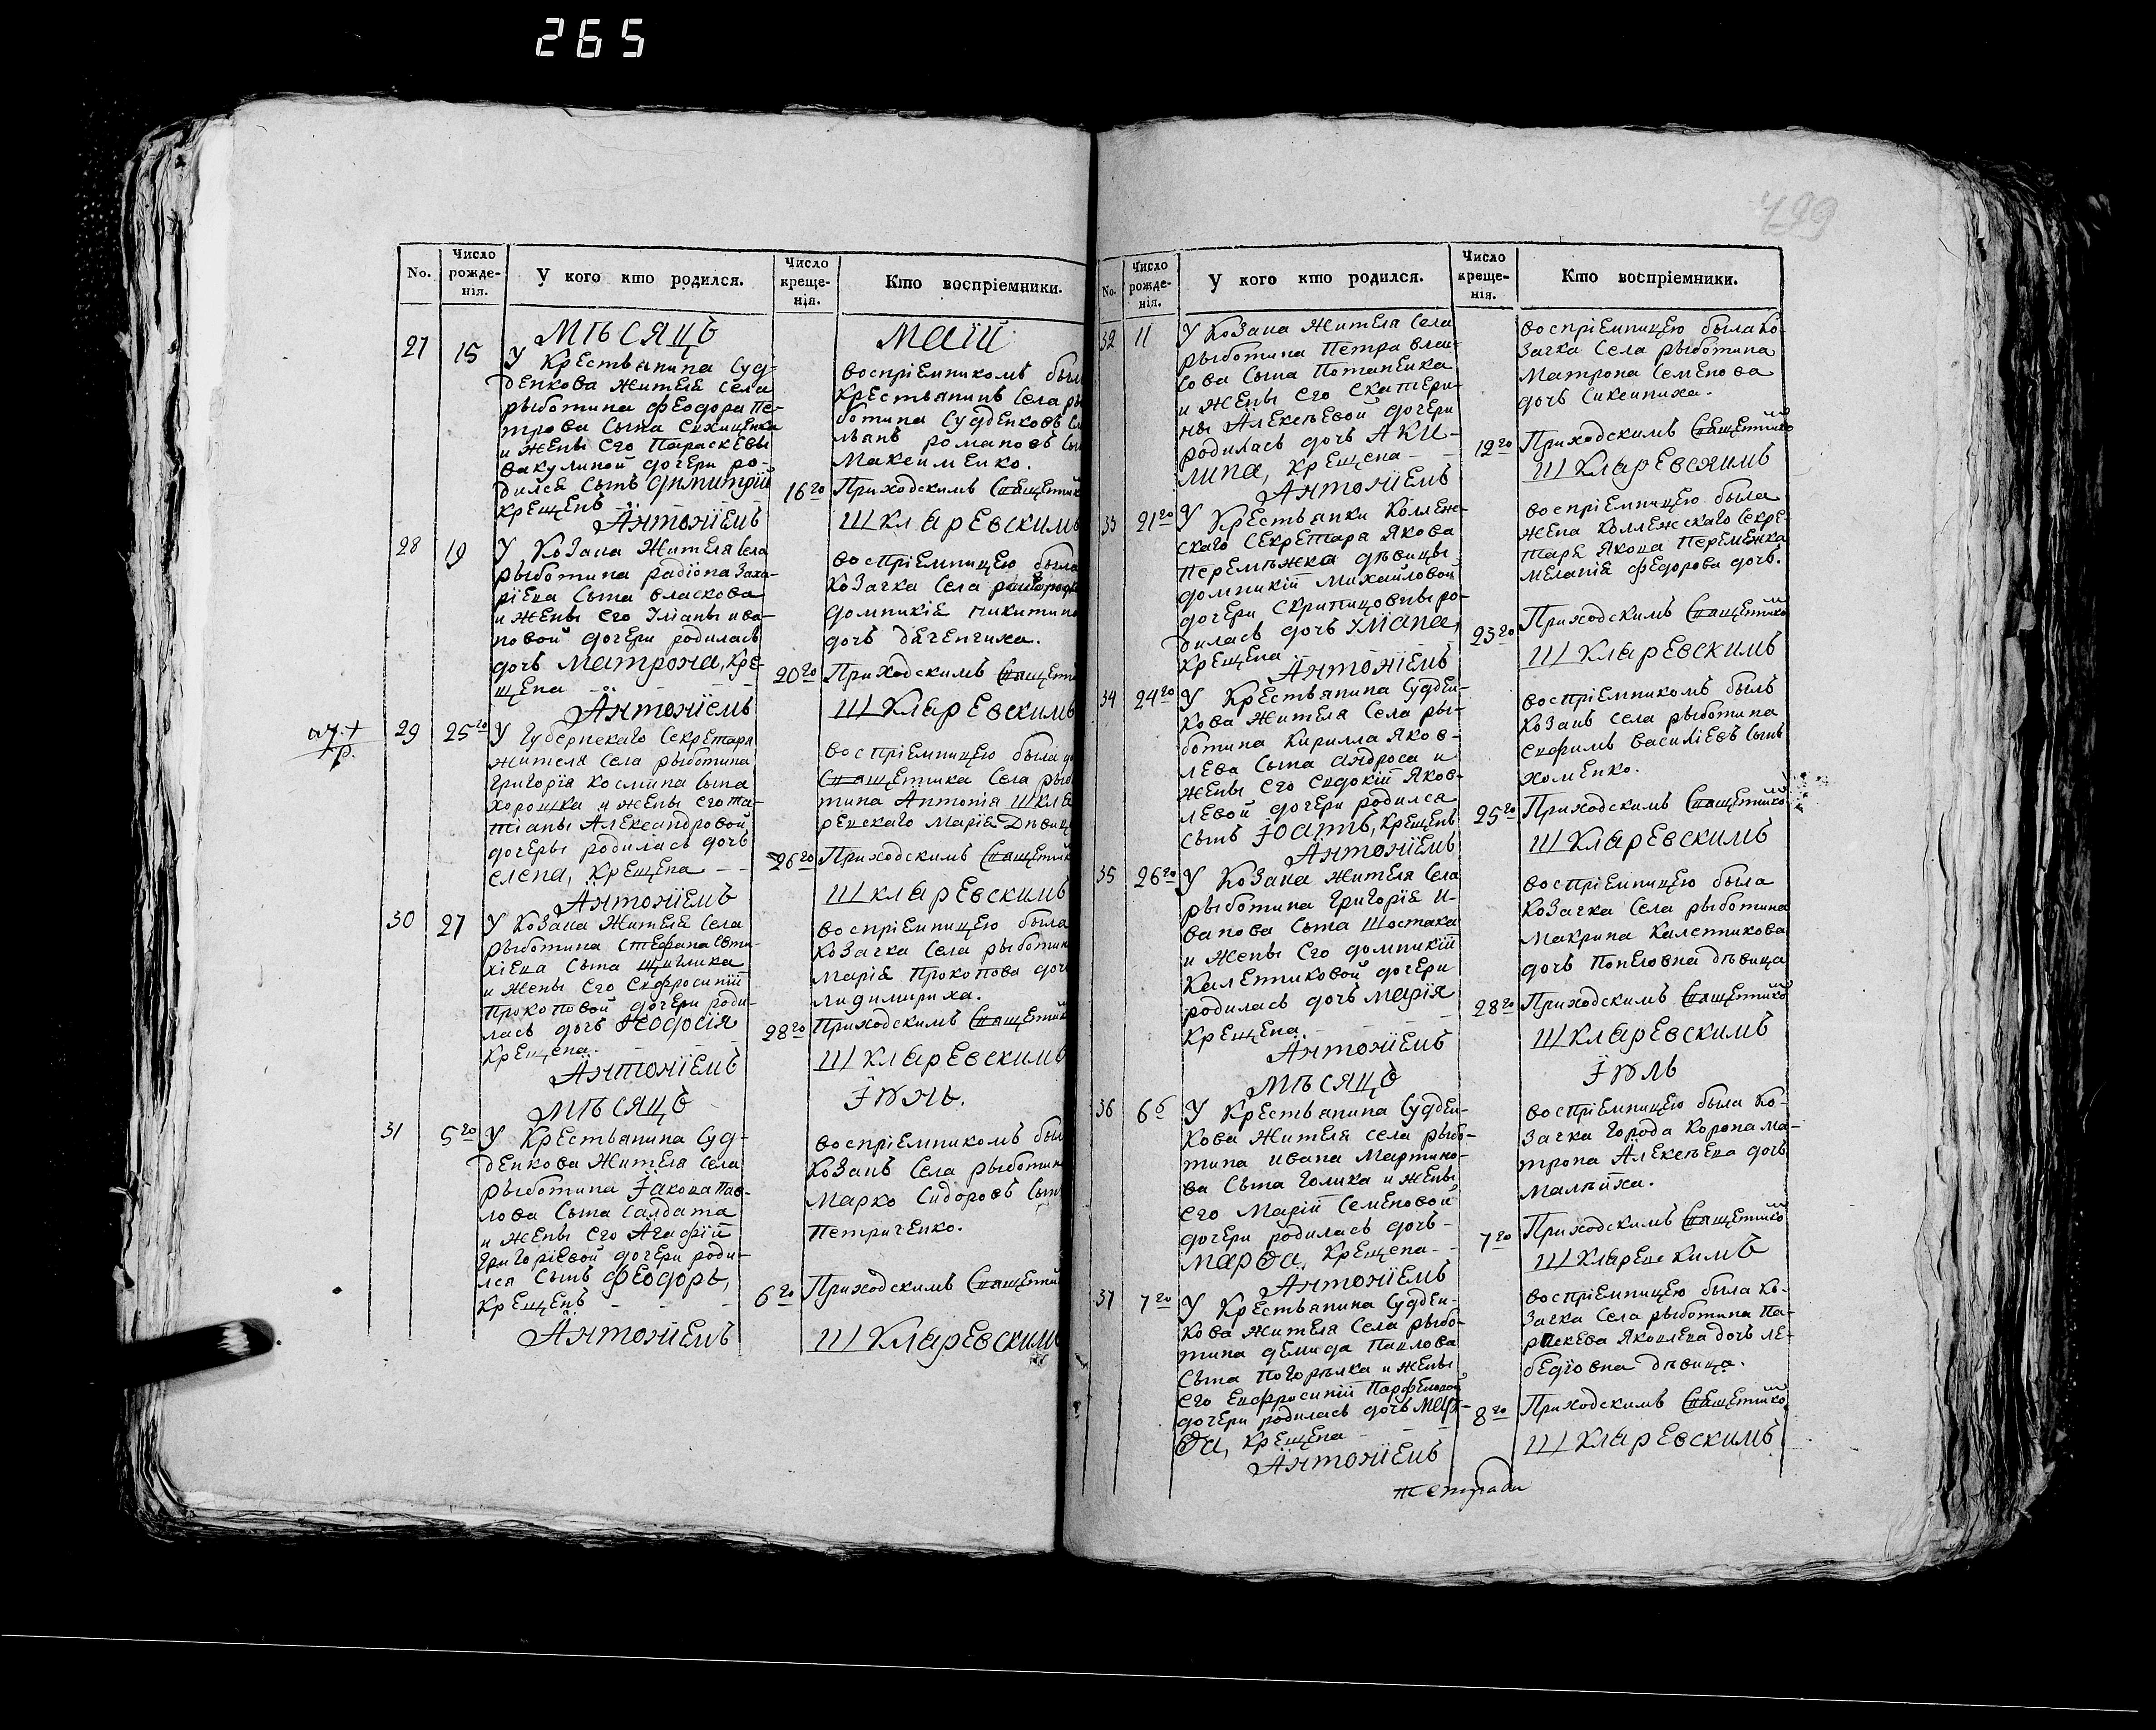 265
499
No.
Число рожденія.
У кого кто родился.
Число крещенія.
Кто воспріемники.
Мѣсяцъ
Маій
27
15
У Крестьянина Суд-
денкова жителя села
рыботина феодора пе-
трова сына
и жены его параскевы
вакулиной дочери ро-
дился сынъ Димитрій
крещенъ
Антоніемъ
воспріемникомъ былъ
крестьянинъ села ры
ботина Судденковъ
романовъ сы
Максименко.
16го
Приходскимъ Священнико
Шкларевскимъ
28
19
У Козака Жителя села
рыботина радіона заха-
ріева сына власкова
и жены его Уліаны ива-
новой дочери родилась
дочь Матрона, кре-
щена
Антоніемъ
воспріемницею была
Козачка села
домникія никитина
дочь дѣгенчиха.
20го
Приходскимъ Священ
Шкларевскимъ
29
25го
У Губернскаго Секретаря
жителя села рыботина
Григорія космина сына
хорошка и жены его та-
тіаны Александровой
дочеры родилась дочь
елена, крещена
Антоніемъ
воспріемницею была до
Священника села рыбо
тина Антонія Шкла
ревскаго Марія Дѣвиц
26го
Приходскимъ Священник
Шкларевскимъ
30
27
У Козака Жителя села
рыботина Стефана Евти-
хіева сына щиглика
и жены его Евфросиніи
прокоповой дочери роди-
лась дочь Феодосія
крещена.
Антоніемъ
воспріемницею была
козачка села рыботин
Марія Прокопова доч
лидимириха.
28го
Приходскимъ Священник
Шкларевскимъ
Мѣсяцъ
Іюнь.
31
5го
У Крестьянина Суд-
денкова жителя села
рыботина Іакова пав-
лова сына салдата
и жены его Агафіи
Григоріевой дочери роди-
лся сынъ Феодоръ,
крещенъ
Антоніемъ
воспріемникомъ был
козакъ села рыботин
Марко Сидоровъ сын
Петриченко.
6го
Приходскимъ Священни
Шкларевскимъ
No.
Число рожденія.
У кого кто родился.
Число крещенія.
Кто воспріемники.
32
11
У Козака жителя села
рыботина Петра вла-
сова сына Потапенка
и жены его Екатери-
ны Алексѣевой дочери
родилась дочь Аки-
лина, крещена
Антоніемъ
воспріемницею была Ко-
зачка села рыботина
Матрона Семенова
дочь Сикеипиха.
12го
Приходскимъ Священнико
Шкларевскимъ
33
21го
У Крестьянки Коллеж-
скаго Секретаря Якова
Перемѣжка дѣвицы
домникіи Михайловой
дочери Скрипцовны ро-
дилась дочь Уліана,
крещена
Антоніемъ
воспріемницею была
жена Коллежскаго Секре-
таря Якова Перемежка
Меланія федорова дочь.
23го
Приходскимъ Священнико
Шкларевскимъ
34
24го
У Крестьянина Судден-
кова Жителя села ры-
ботина Кирилла Яков-
лева сына андроса и
жены его Евдокіи Яков-
левой дочери родился
сынъ Іоаннъ, крещенъ
Антоніемъ
воспріемникомъ былъ
козакъ села рыботина
Евфимъ василіевъ сынъ
хоменко.
25го
Приходскимъ Священнико
Шкларевскимъ
35
26го
У Козака жителя села
рыботина Григорія И-
ванова сына Шостака
и жены его домникіи
Калетиковой дочери
родилась дочь Марія
крещена
Антоніемъ
воспріемницею была
козачка села рыботина
Макрина Калетникова
дочь Попеловна дѣвица
28го
Приходскимъ Священнико
Шкларевскимъ
Мѣсяцъ
Іюль
36
6г
У Крестьянина Судден-
кова Жителя села рыбо-
тина ивана Мартино-
ва сына Голика и жены
его Маріи Семеновой
дочери родилась дочь
Марѳа, крещена
Антоніемъ
воспріемницею была Ко-
зачка города Коропа Ма-
трона Алексѣева дочь
Малѣиха.
7го
Приходскимъ Священнико
Шкларевскимъ
37
7го
У Крестьянина Судден-
кова жителя села рыбо-
тина демида Павлова
сына погорѣлка и жены
его Евфросиніи Парфеновой
дочери родилась дочь Мар-
ѳа, крещена
Антоніемъ
воспріемницею была Ко-
зачка села рыботина Па-
раскева Яковлева дочь ле-
бедіовна дѣвица.
8го
Приходскимъ Священнико
Шкларевскимъ
тетради